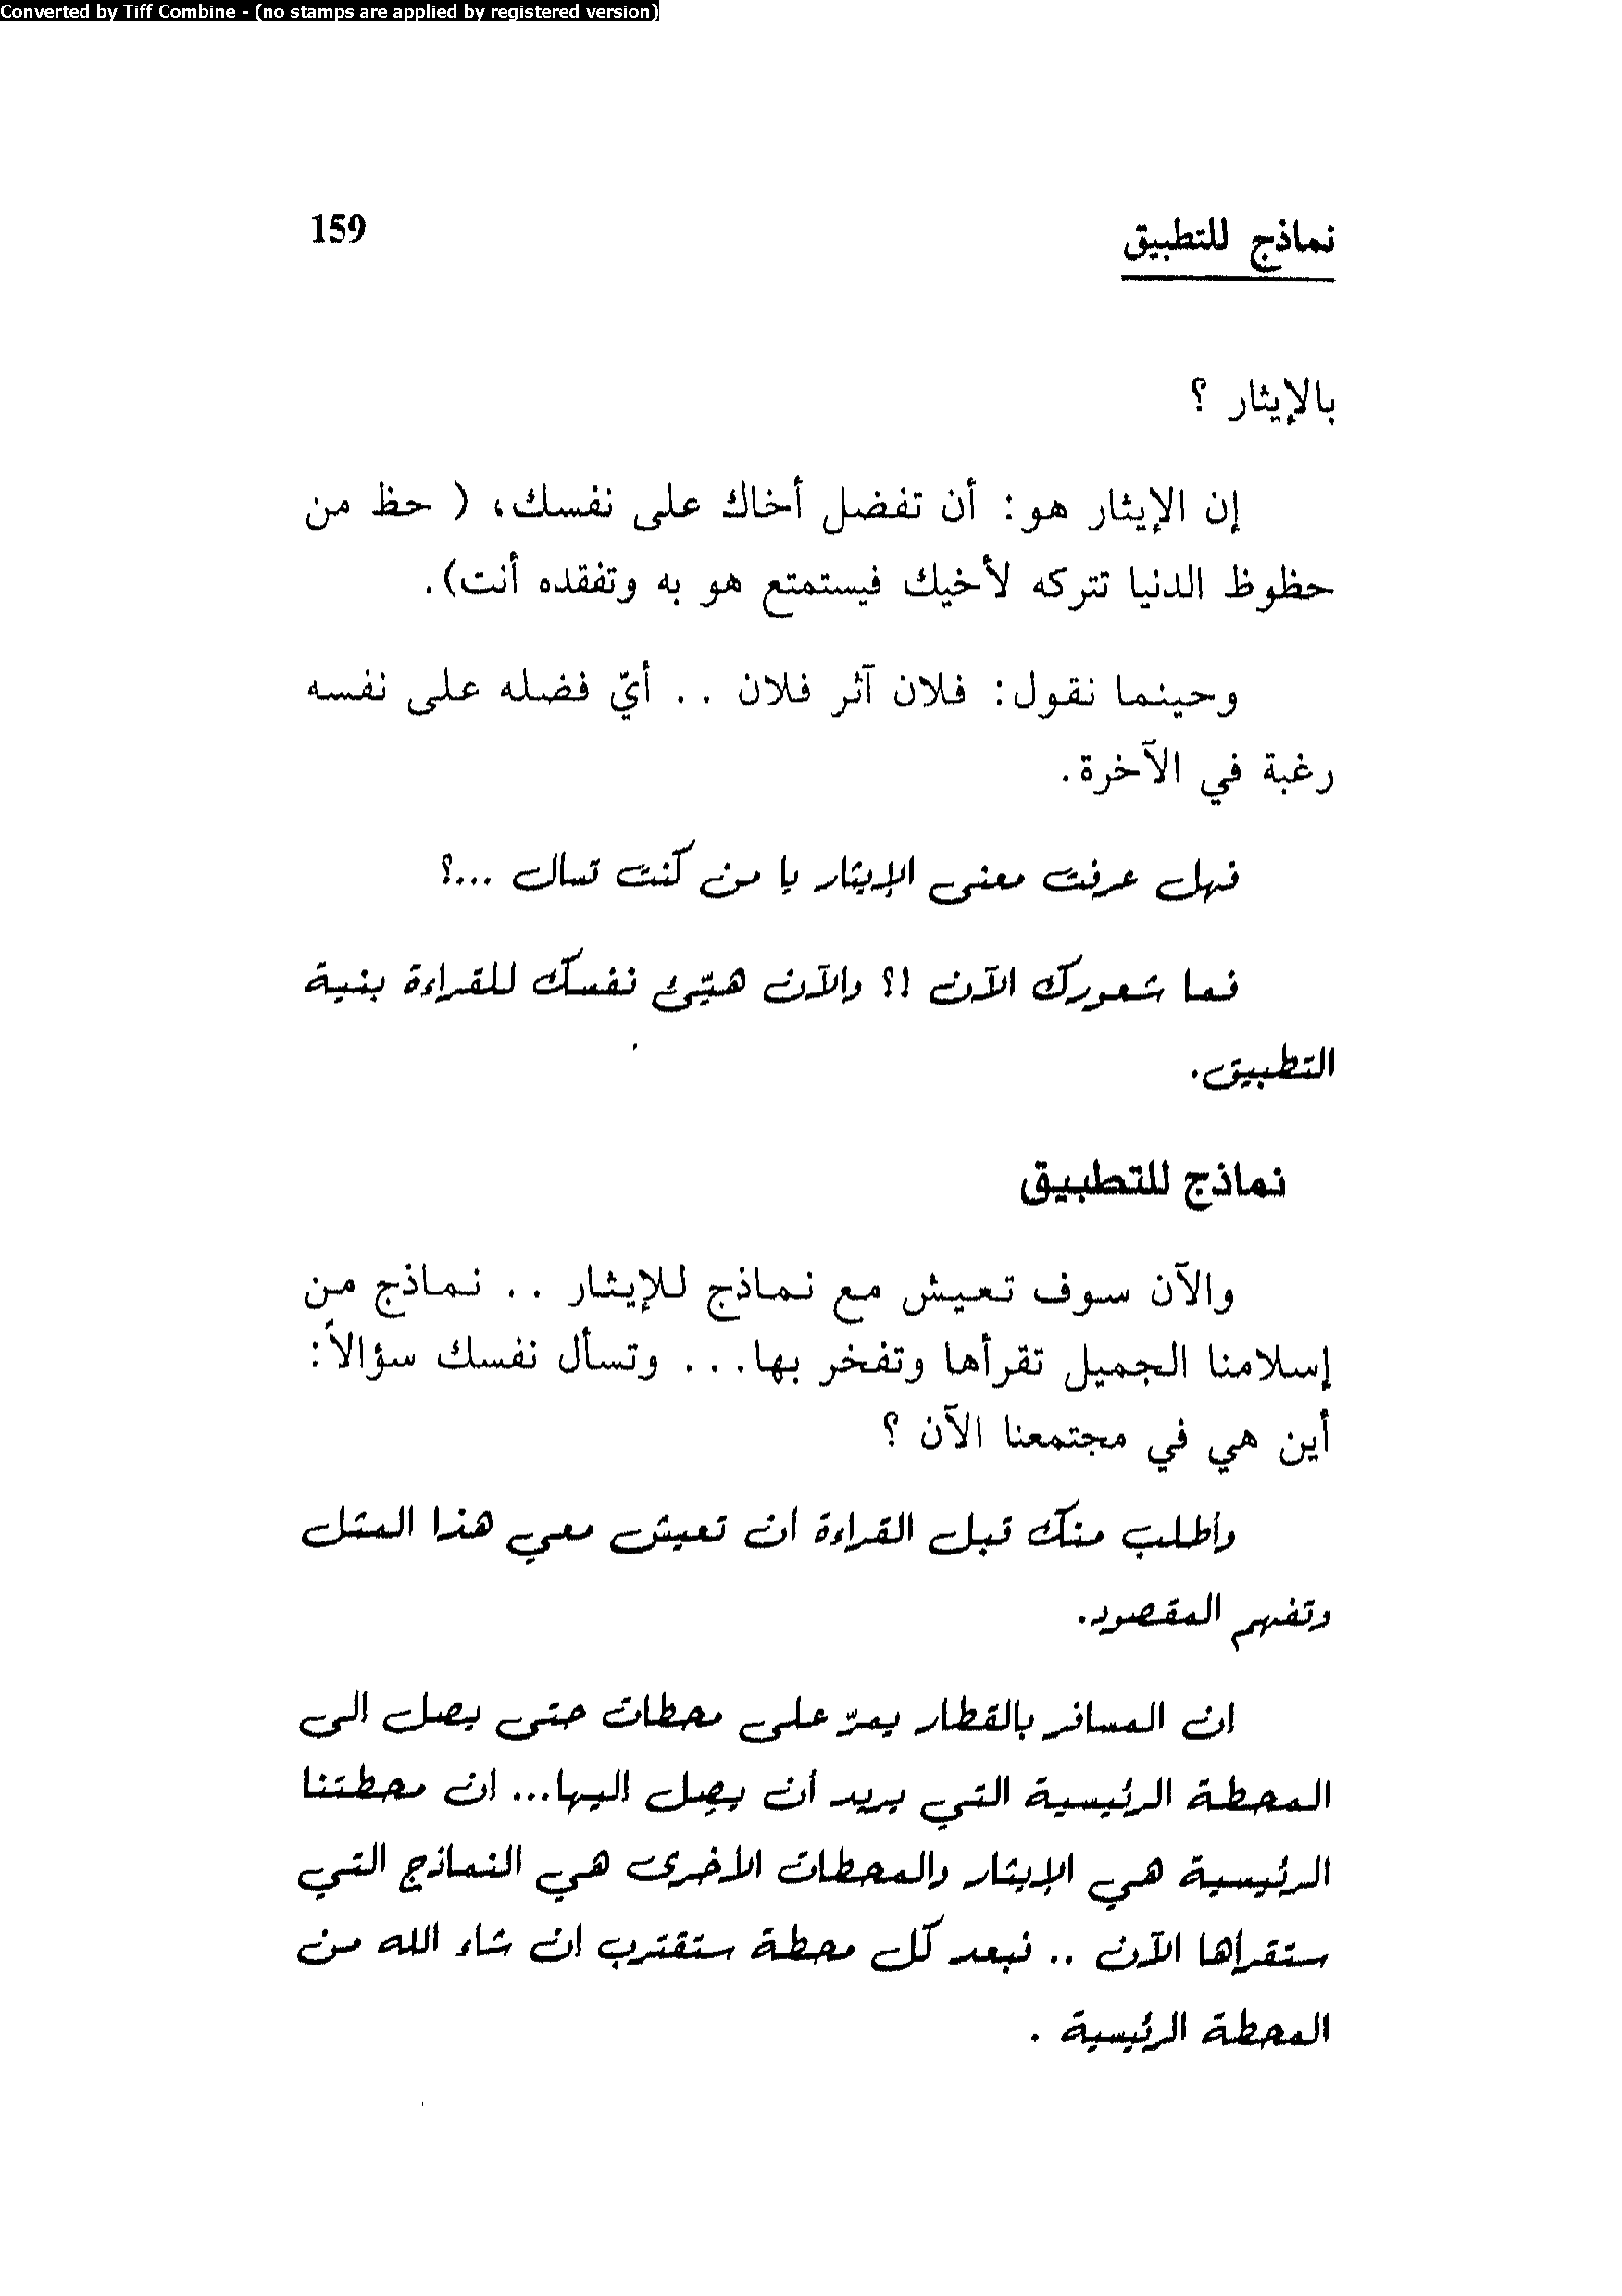 Converted by Tiff Combine - (no stamps are applied by registered version)
نماذج للتطبيق 159
بالإيثار ؟
إن الإيثار هو: أن تفضل أخاك على نفسك، ( حظ من
حظوظ الدنيا تتركه لأخيك فيستمتع هو به وتفقده أنت).
وحينما نقول: فلان آثر فلان .. أيّ فضله على نفسه
رغبة في الآخرة.
فهل عرفت معنى الإيثار يا من كنت تسال ...؟
فما شعورك الآن !؟ والآن هيّئ نفسك للقراءة بنية
التطبيق.
نماذج للتطبيق
والآن سوف تعيش مع نماذج للإيثار .. نماذج من
إسلامنا الجميل تقرأها وتفخر بها... وتسأل نفسك سؤالاً:
أين هي في مجتمعنا الآن ؟
وأطلب منك قبل القراءة ان تعيش معي هذا المثل
وتفهم المقصود.
ان المسافر بالقطار يمرّ على محطات حتى يصل الى
المحطة الرئيسية التي يريد أن يصِل اليها... ان محطتنا
الرئيسية هي الإيثار والمحطات الأخرى هي النماذج التي
ستقرأها الآن .. فبعد كل محطة ستقترب ان شاء الله من
المحطة الرئيسية .